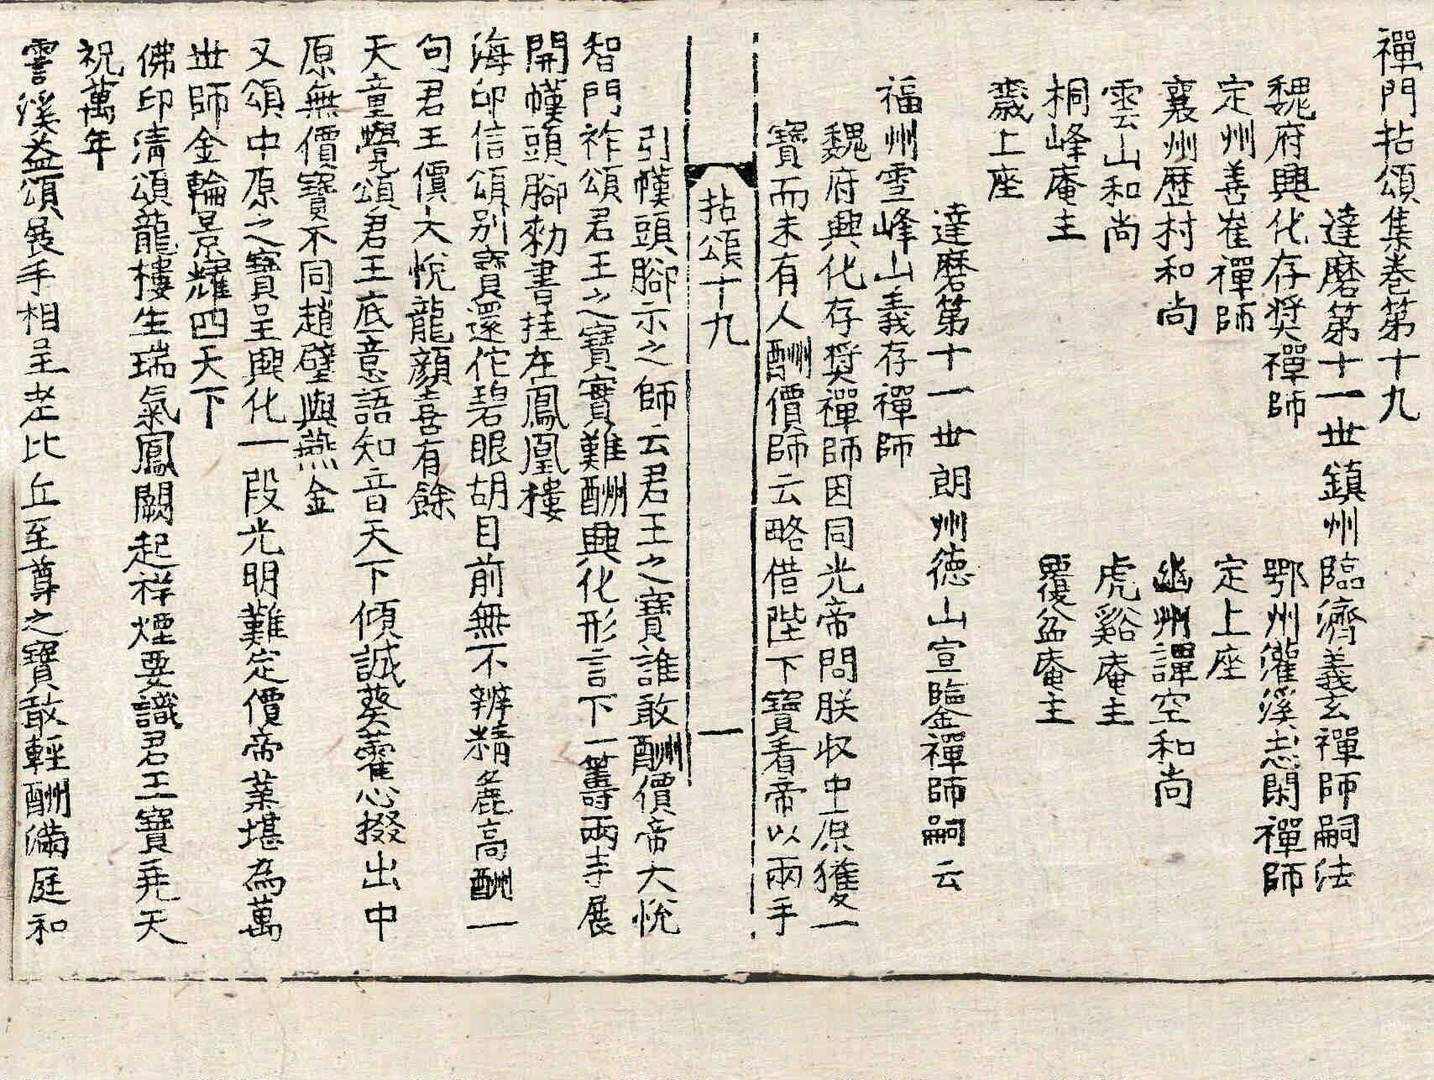 禪門拈頌集卷第十九
達磨第十一世鎮州臨濟義玄禪師嗣法
魏府興化存奬禪師　鄂州灌溪志閑禪師
定州善崔禪師　定上座
襄州歷村和尚　幽州譚空和尚
雲山和尚　虎谿庵主
桐峰庵主　覆盆庵主
奯上座
達磨第十一世朗州德山宣鑒禪師嗣云
福州雪峰山義存禪師
魏府興化存奬禪師因同光帝問朕收中原獲一
寶而未有人酬價師云略借陛下寶看帝以兩手
拈頌十九　一
引幞頭脚示之師云君王之寶誰敢酬價帝大悅
智門祚頌君王之寶實難酬興化形言下一籌兩手展
開幞頭腳勑書挂在鳳凰樓
海印信頌別寶還佗碧眼胡目前無不辨精麁高酬一
句君王價大悅龍顏喜有餘
天童覺頌君王底意語知音天下傾誠葵藿心掇出中
原無價寶不同趙璧與燕金
又頌中原之寶呈興化一段光明難定價帝業堪為萬
世師金輪景耀四天下
佛印淸頌龍樓生瑞氣鳳闕起祥煙要識君王寶堯天
祝萬年
霅溪益頌展手相呈老比丘至尊之寶敢輕酬滿庭和